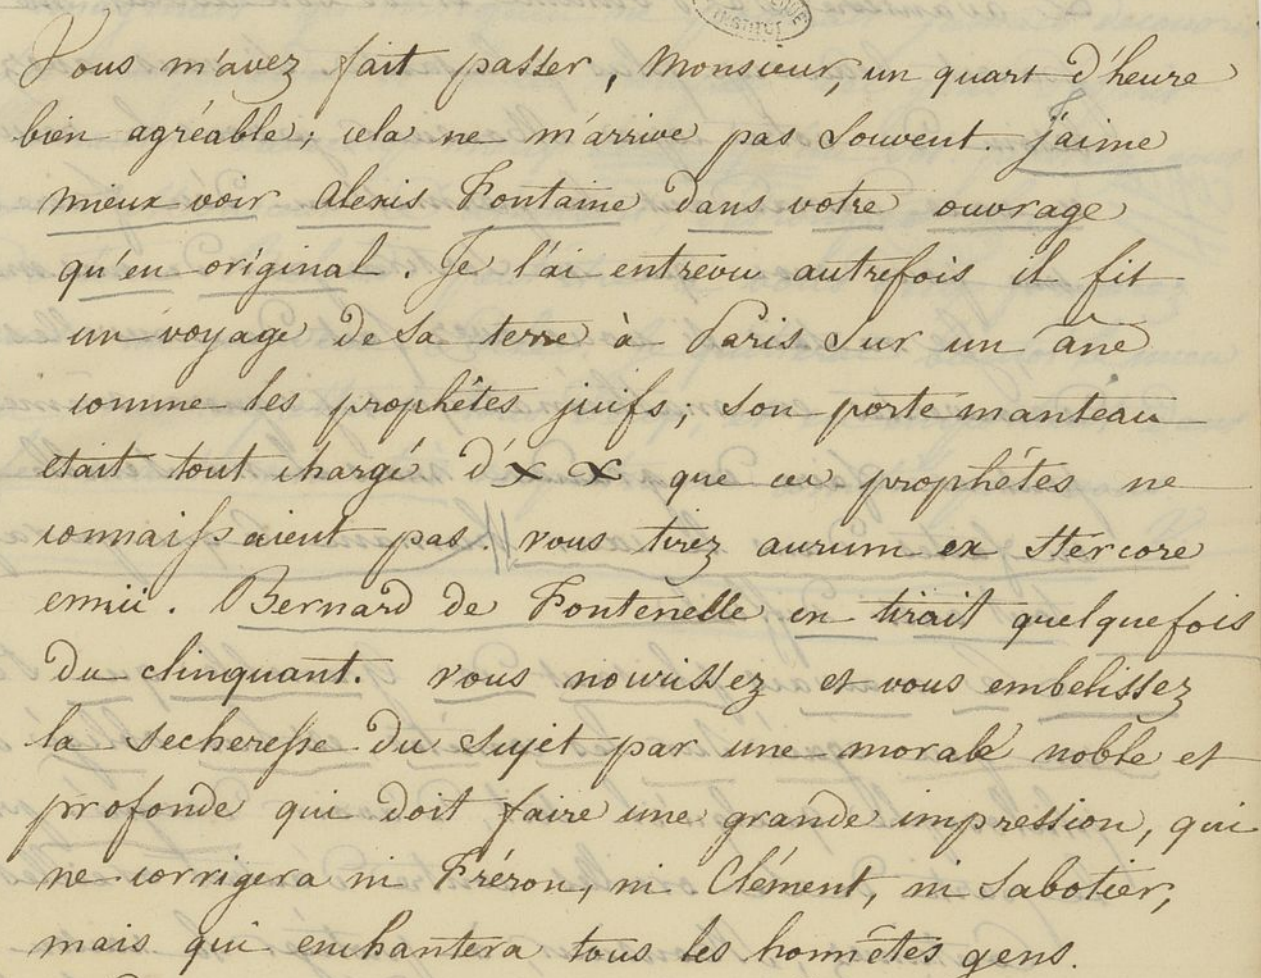 Vous m'avez fait passer, Monsieur, un quart d'heure
bien agréable; cela ne m'arrive pas souvent. j'aime
mieux voir Alexis Fontaine dans votre ouvrage
qu'en original. Je l'ai entrevu autrefois il fit
un voyage de sa terre à Paris sur un âne
comme les prophêtes juifs; son porte manteau
était tout chargé d'x x que ces prophêtes ne
connaissaient pas. vous tirez aurum ex stercore
ennii. Bernard de Fontenelle en tirait quelquefois
du clinquant. vous nourissez et vous embelissez
la secheresse du sujet par une morale noble et
profonde qui doit faire une grande impression, qui
ne corrigera ni Fréron, ni Clément, ni Sabotier,
mais qui enchantera tous les honnêtes gens.